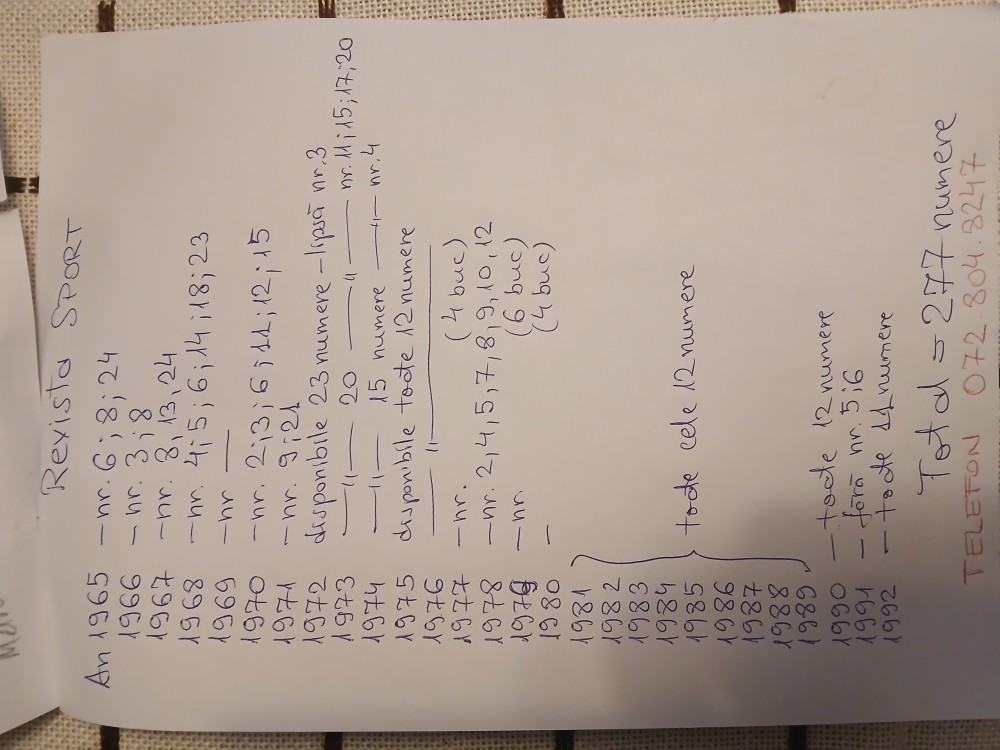 Revista SPORT
An 1965 – nr. 6; 8; 24
1966 – nr. 3; 8
1967 – nr. 8, 13, 24
1968 – nr. 4; 5; 6; 14; 18; 23
1969 – nr —
1970 – nr. 2; 3; 6; 11; 12; 15
1971 – nr. 9; 21
1972 disponibile 23 numere – lipsă nr. 3
1973 —〃— 20 —〃— nr. 11; 15; 17; 20
1974 —〃— 15 numere —〃— nr. 4
1975 disponibile toate 12 numere
1976 —〃—
1977 – nr. (4 buc)
1978 – nr. 2, 4, 5, 7, 8, 9, 10, 12
1979 – nr. (6 buc)
1980 – (4 buc)
1981
1982
1983
1984
1985 toate cele 12 numere
1986
1987
1988
1989
1990 – toate 12 numere
1991 – fără nr. 5; 6
1992 – toate 11 numere
Total = 277 numere
TELEFON 072.804.8247